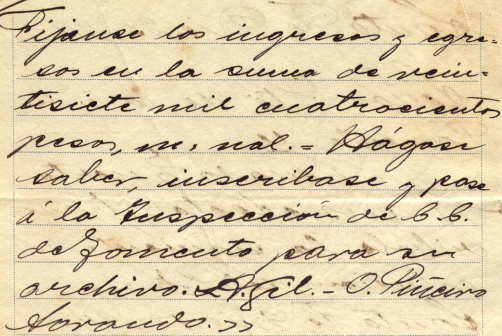 Fíjanse los ingresos y egre-
sos en la suma de vein-
tisiete mil cuatrocientos
pesos, m, nal.= Hágase
saber, inscríbase y pase
á la Inspección de C C.
de Fomento para su
archivo. A. Gil.- O. Piñeiro
Sorondo.»